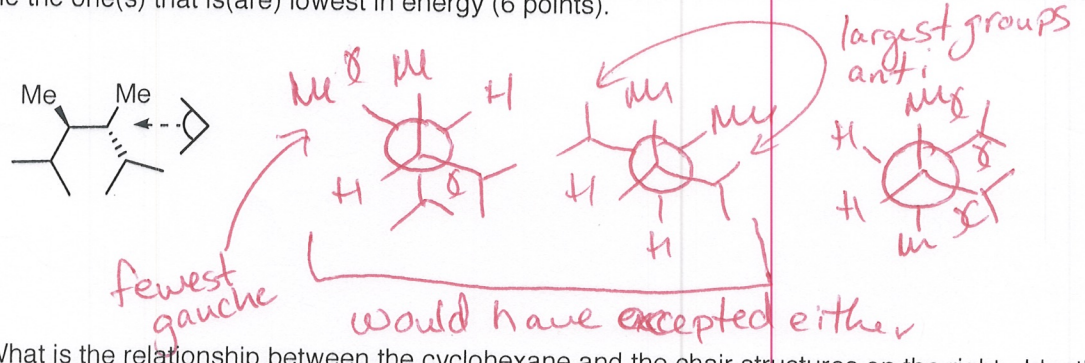 e the one(s) that is(are) lowest in energy (6 points).
largest groups
anti
Me
Me
Me
Me
H
H
Me
Me
H
H
Me
H
H
Me
fewest
gauche
would have accepted either
What is the relationship between the cyclohexane and the chair structures on the right